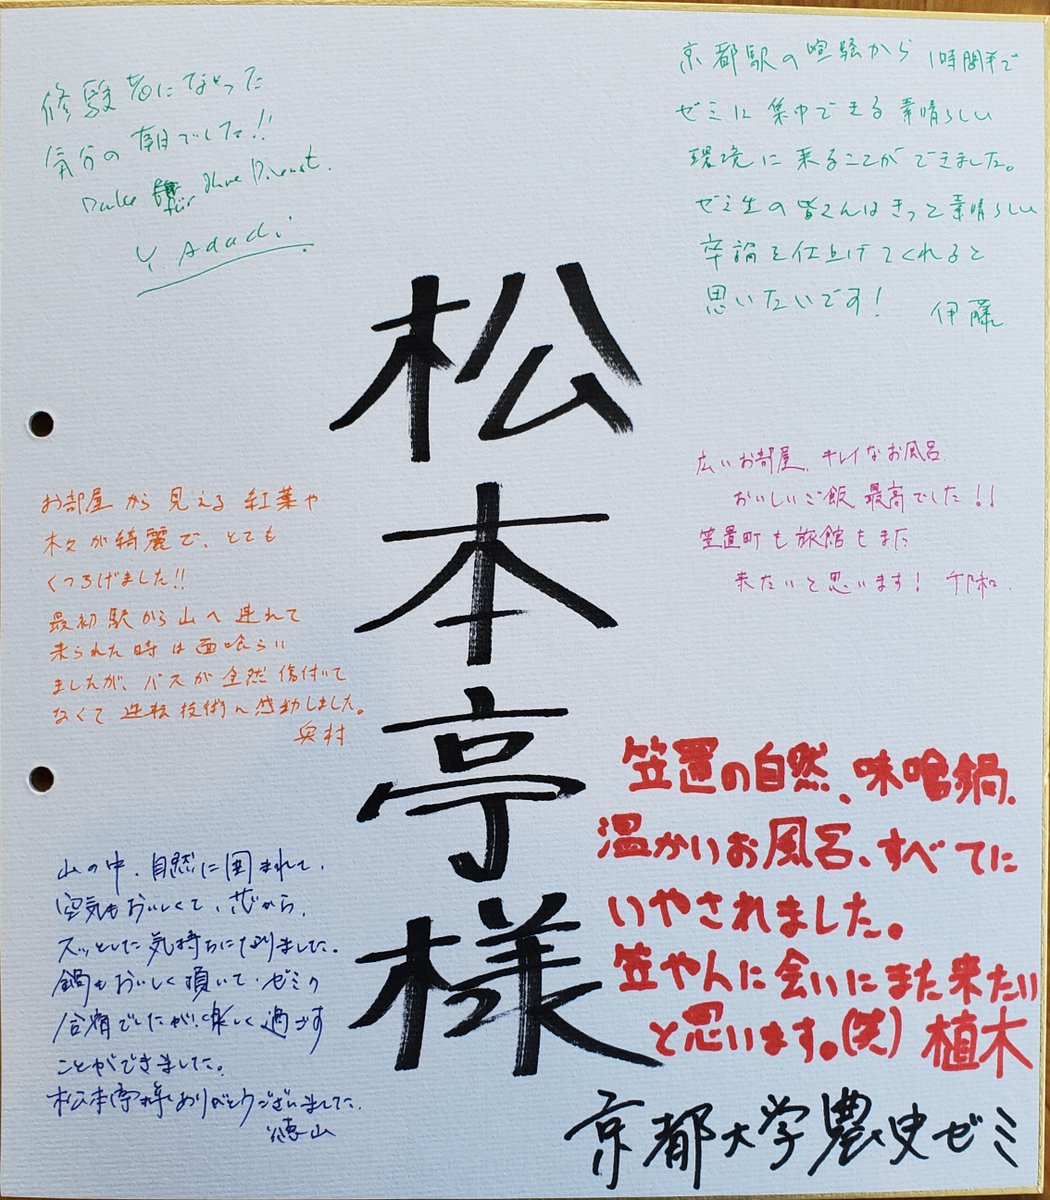 修験者になった
気分の朝でした!!
für Ihre Dienst.
Y. Adachi
京都駅の喧騒から1時間半で
ゼミに集中できる素晴らしい
環境に来ることができました。
ゼミ生の皆さんはきっと素晴らしい
卒論を仕上げてくれると
思いたいです!伊藤
松本亭様
お部屋から見える紅葉や
木々が綺麗で、とても
くつろげました!!
最初駅から山へ連れて
来られた時は面喰らい
ましたが、バスが全然傷付いて
なくて運転技術に感動しました。
奥村
広いお部屋、キレイなお風呂、
おいしいご飯 最高でした!!
笠置町も旅館もまた
来たいと思います!
笠置の自然、味噌鍋、
温かいお風呂、すべてに
いやされました。
笠やんに会いにまた来たい
と思います。(笑) 植木
山の中、自然に囲まれて、
空気もおいしくて、芯から、
スッとした気持ちになりました。
鍋もおいしく頂いて、ゼミの
合宿でしたが、楽しく過ごす
ことができました。
松本亭様ありがとうございました。
徳山
京都大学農史ゼミ